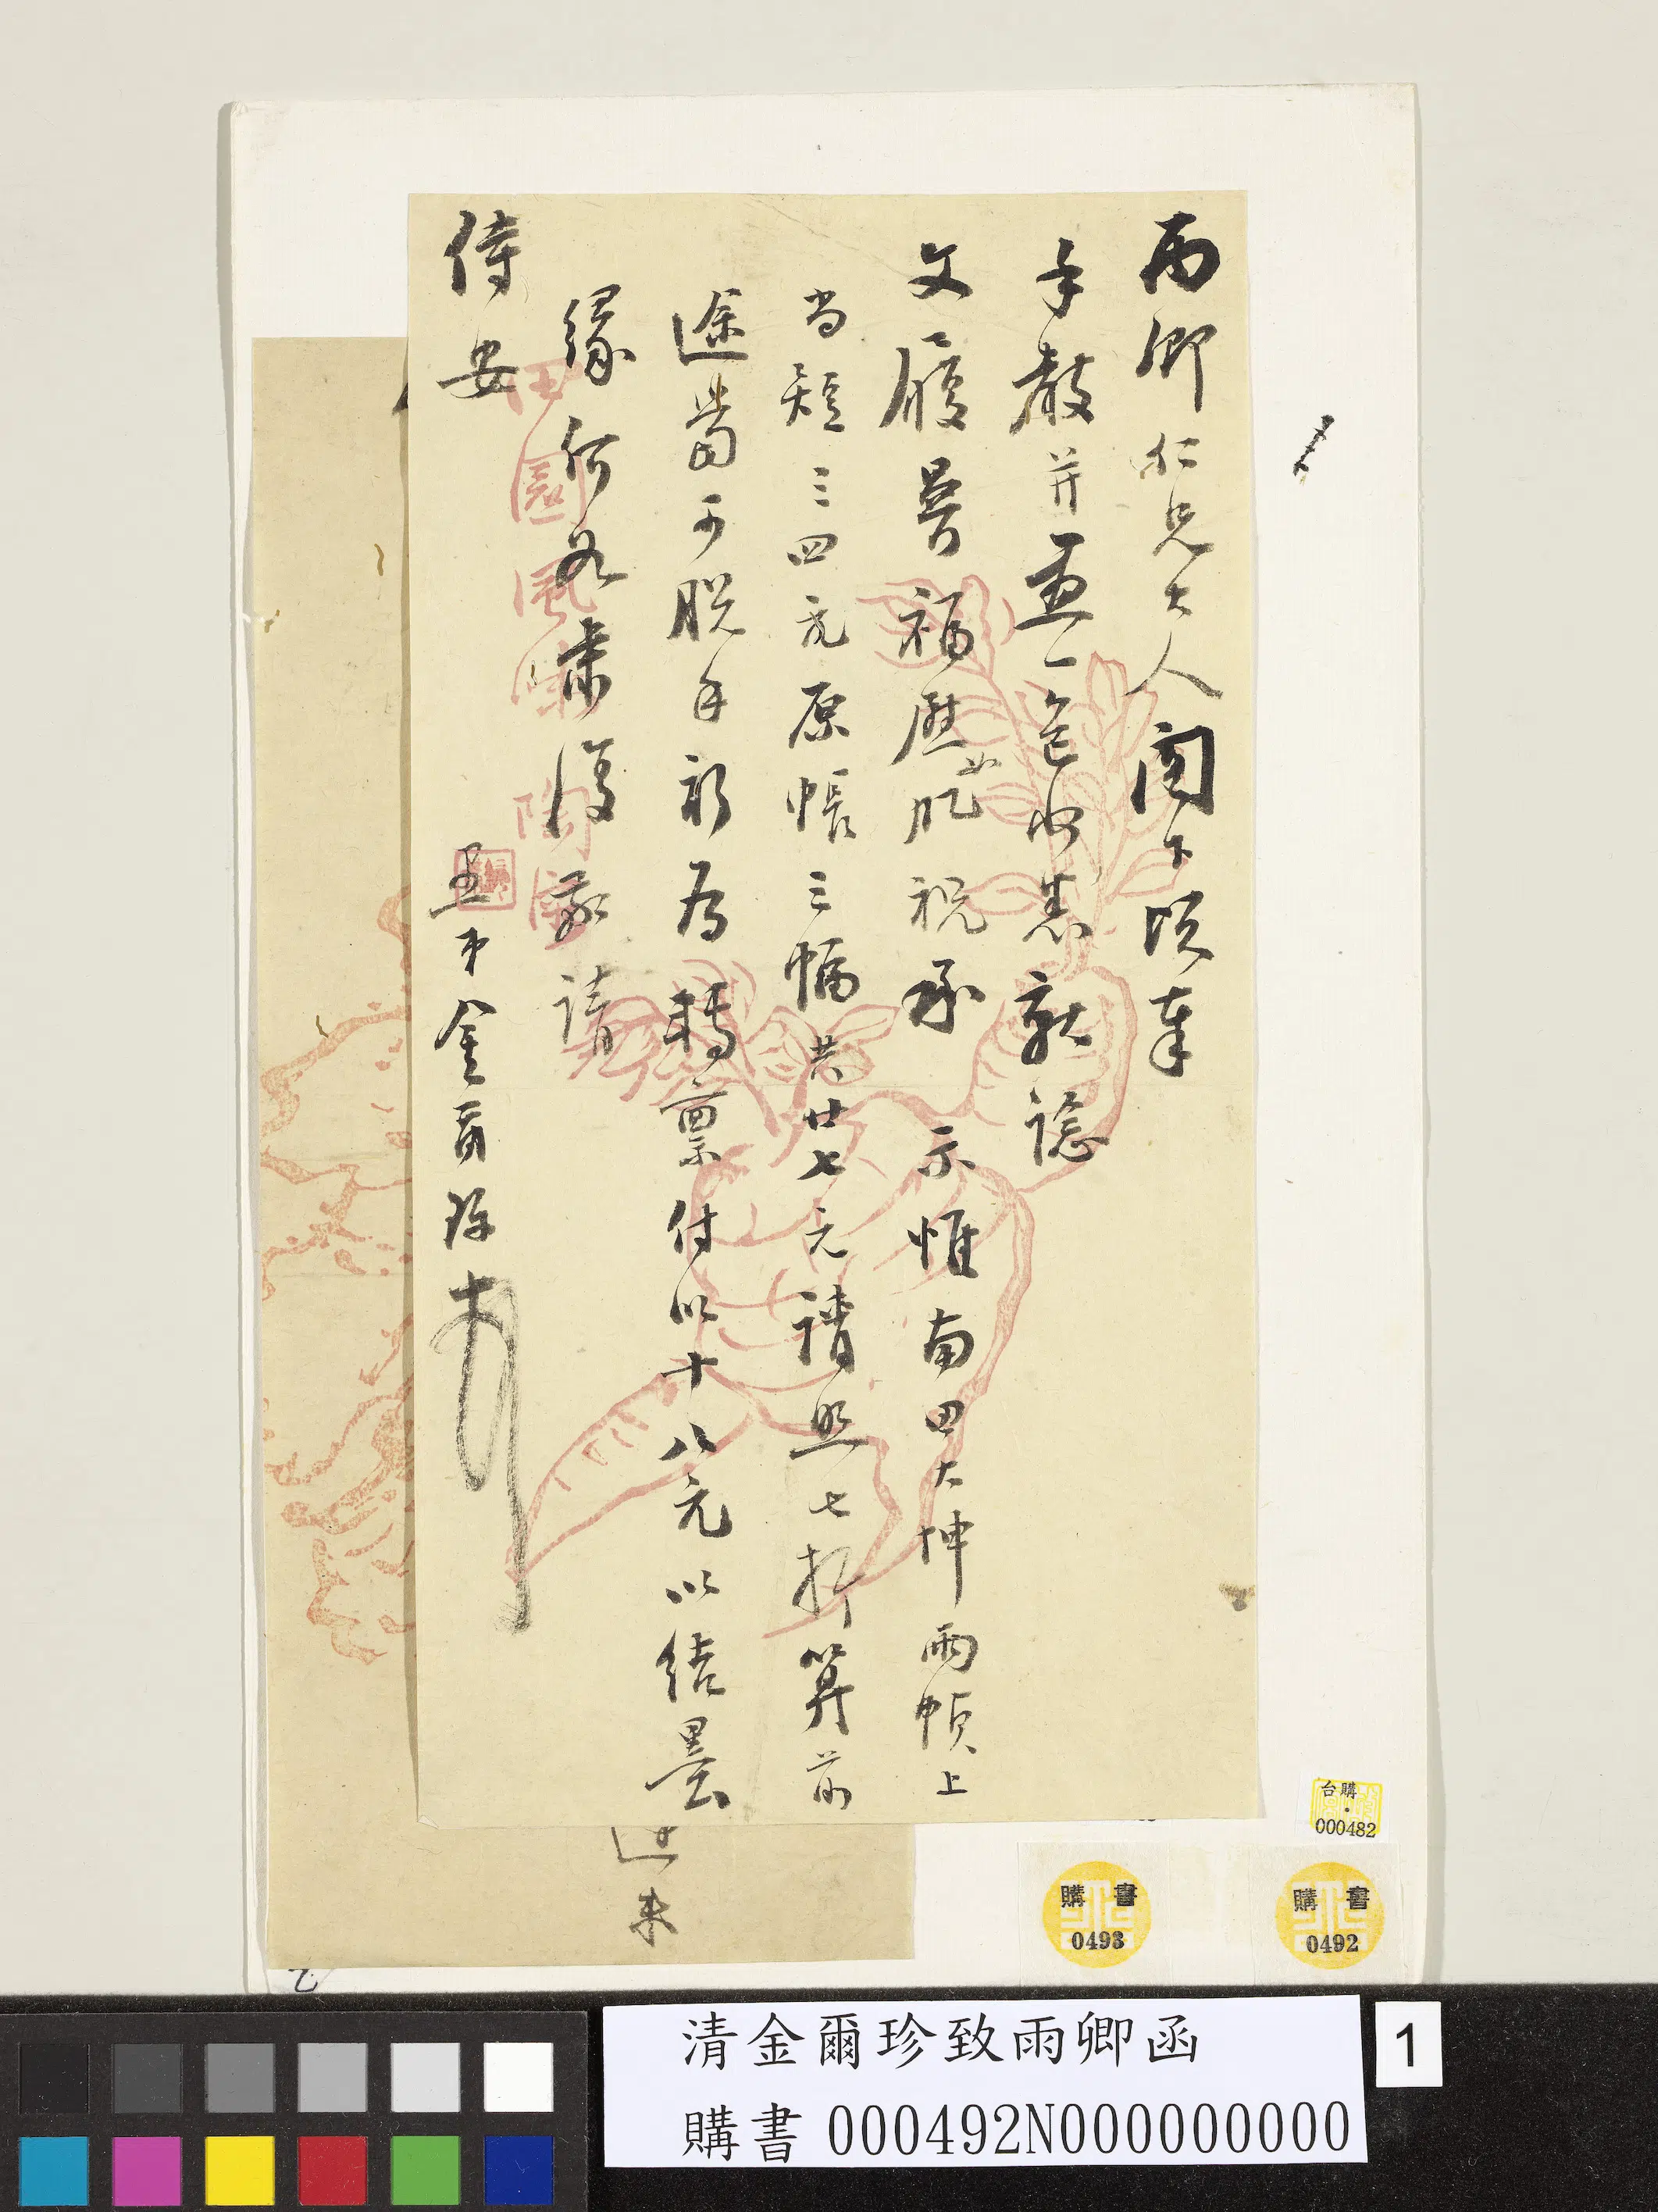 雨卿仁兄大人閣下頃奉
手教并畫一包收悉就諗
文履晉福歷如肊祝承 示惟南田大坤兩幀上
尚短三四元原帳三幅共廿七元請照七折算前
途當可脫手祈為轉稟付以十八元以結墨
緣何如肅復敬請
侍安
愚弟金爾珍
田園風味
陶
進來
台購
000482
購書
0493
購書
0492
清金爾珍致雨卿函
購書000492N000000000
1